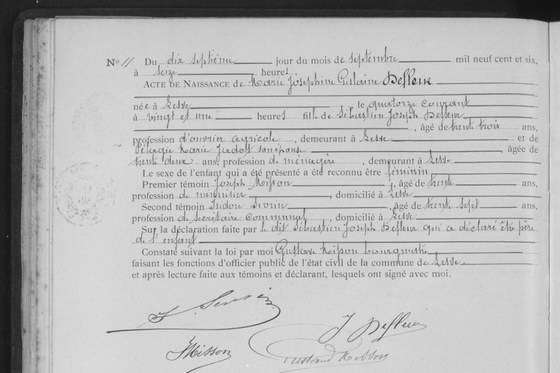 No 11 Du dix septième jour du mois de septembre mil neuf cent et six,
à seize heures
ACTE DE NAISSANCE de Marie Joséphine Guilaine Defleur
née à Lesse, le quatorze courant
à vingt et une heures fille de Sébastien Joseph Defleur
, âgé de trente trois ans,
profession d'ouvrier agricole, demeurant à Lesse et de
Pélagie Marie Jadoll son épouse âgée de
trente deux ans, profession de ménagère, demeurant à Lesse
Le sexe de l'enfant qui a été présenté a été reconnu être féminin
Premier témoin Joseph Misson, âgé de trente ans,
profession de menuisier, domicilié à Lesse
Second témoin Isidore, âgé de trente sept ans,
profession de Secrétaire Communal, domicilié à Lesse
Sur la déclaration faite par le dit Sébastien Joseph Defleur qui a déclaré être père
de l'enfant
Constaté suivant la loi par moi Gustave Misson bourgmestre
faisant les fonctions d'officier public de l'état civil de la commune de Lesse
et après lecture faite aux témoins et déclarant, lesquels ont signé avec moi.
J Defleur
J Misson
Gustave Misson